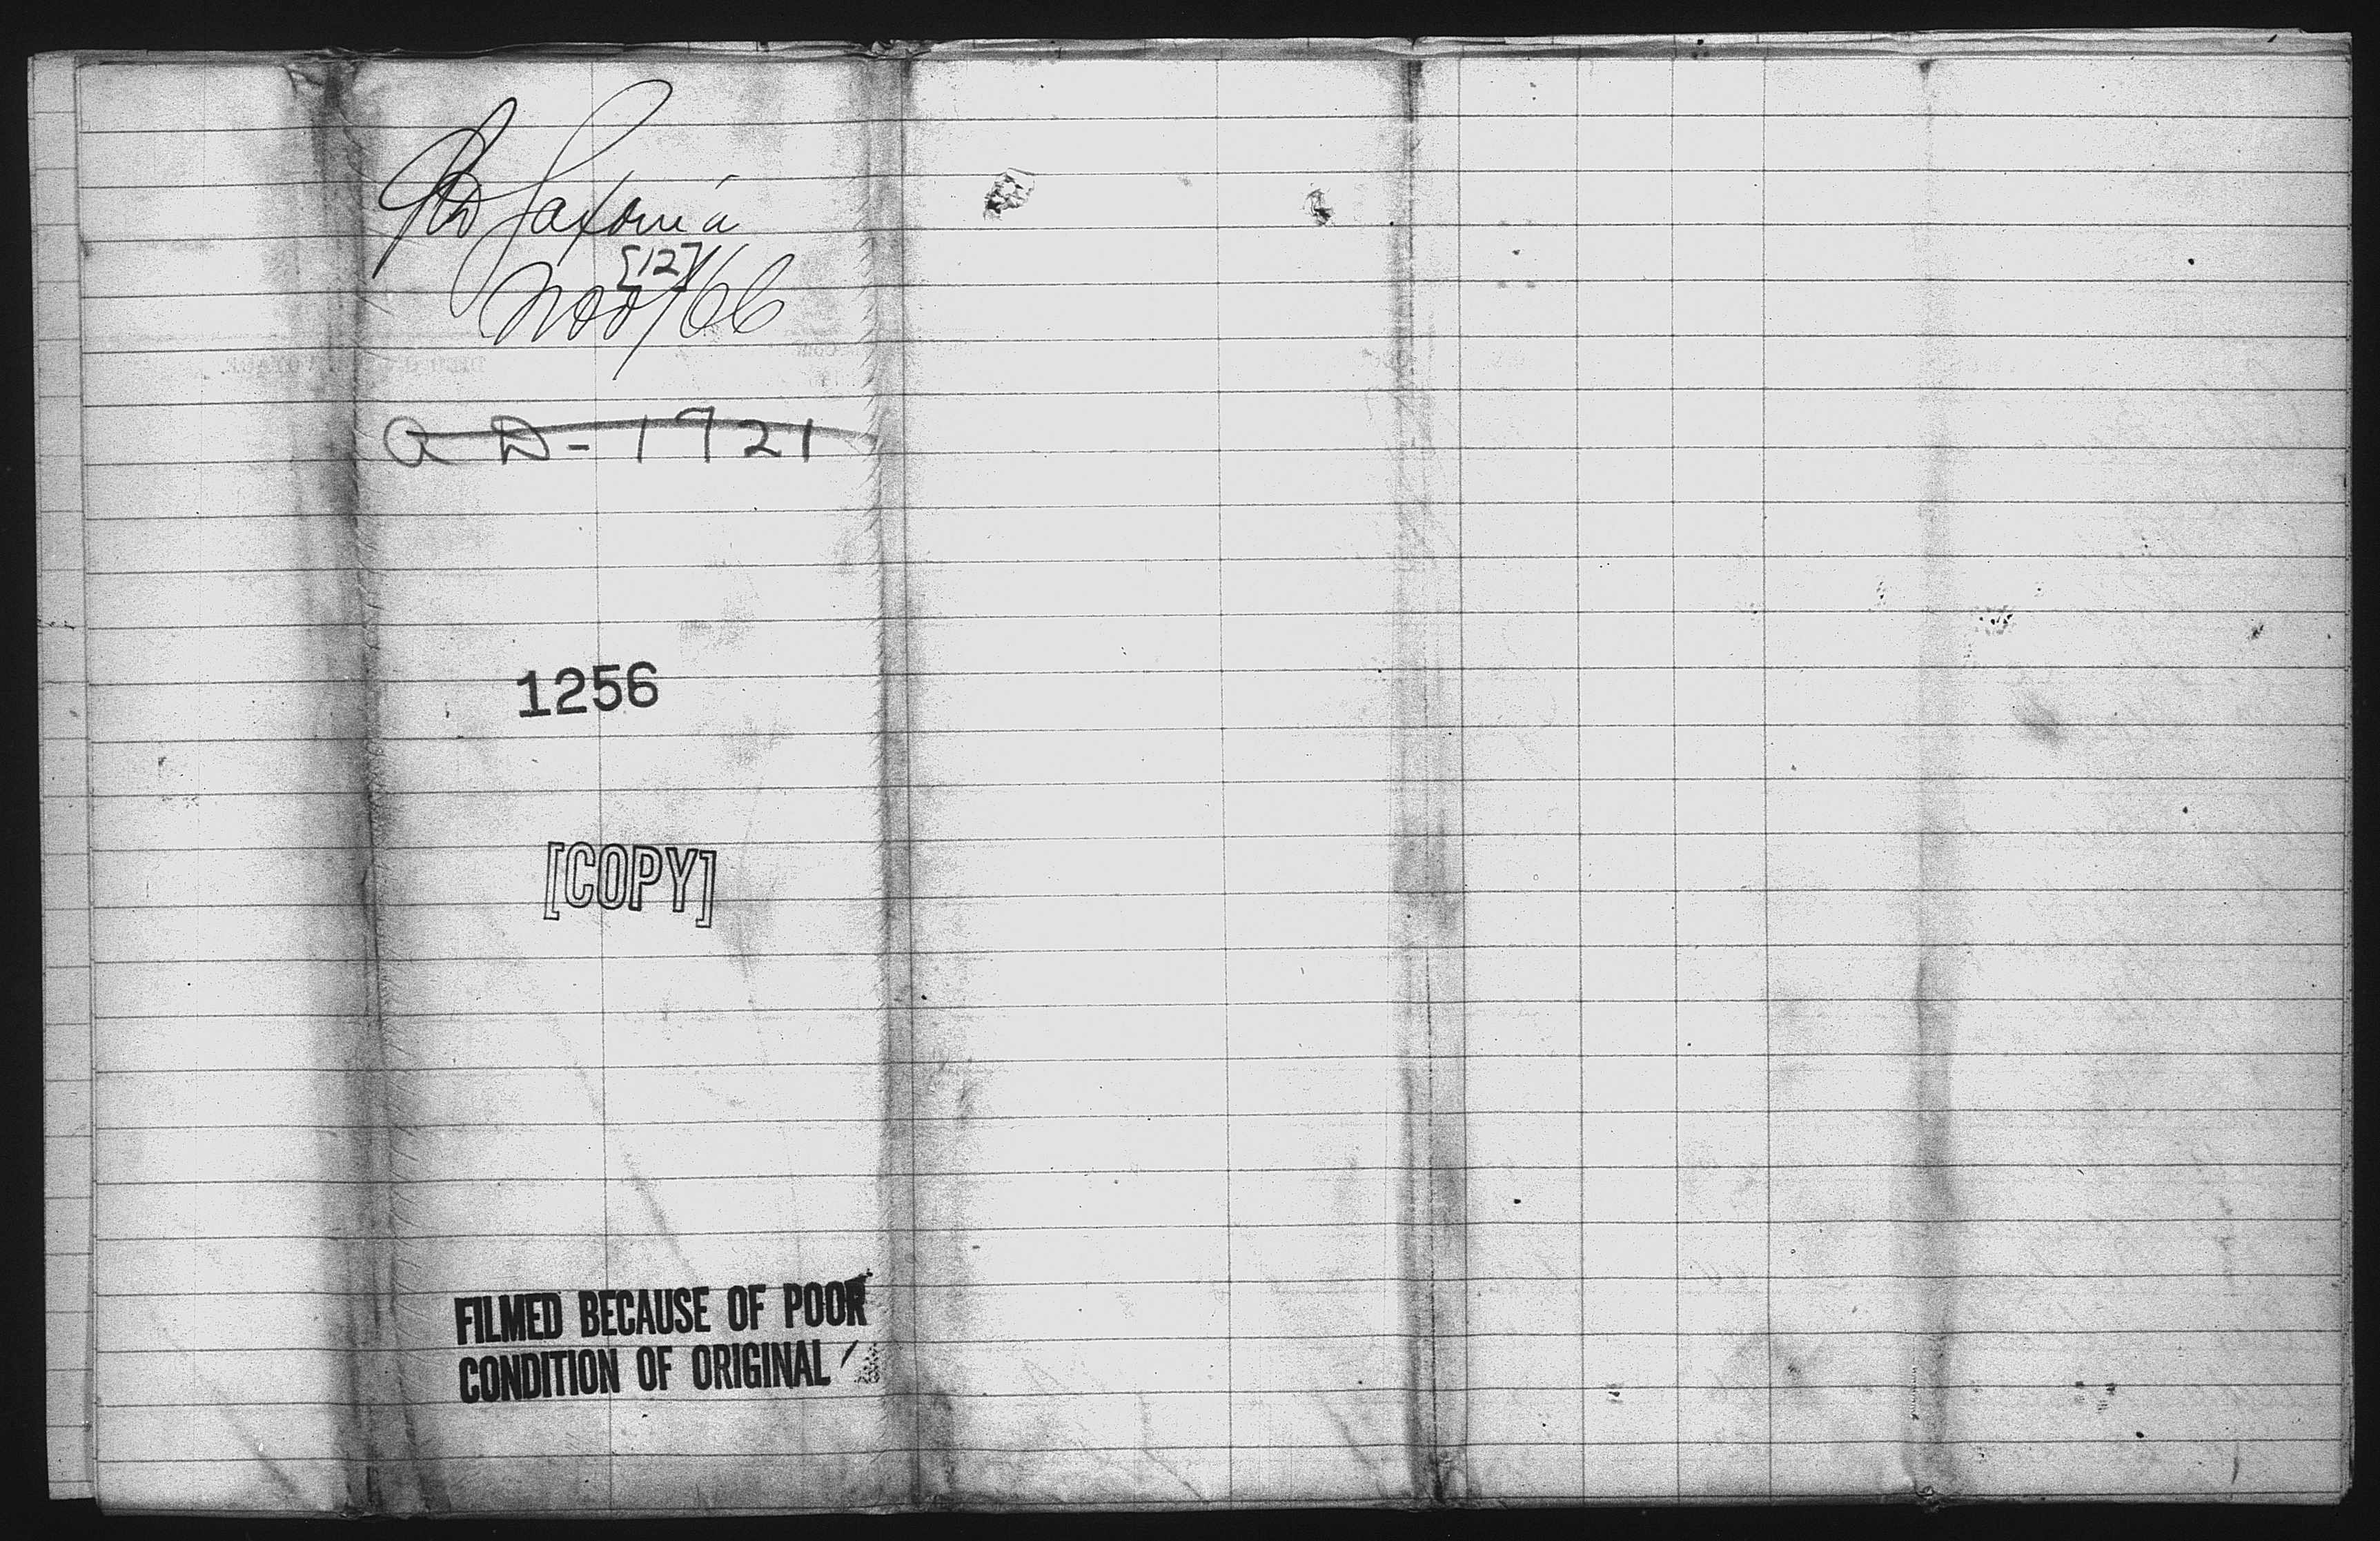 Saxonia
[12]
Nov/66
A D - 1921
1256
[COPY]
FILMED BECAUSE OF POOR
CONDITION OF ORIGINAL